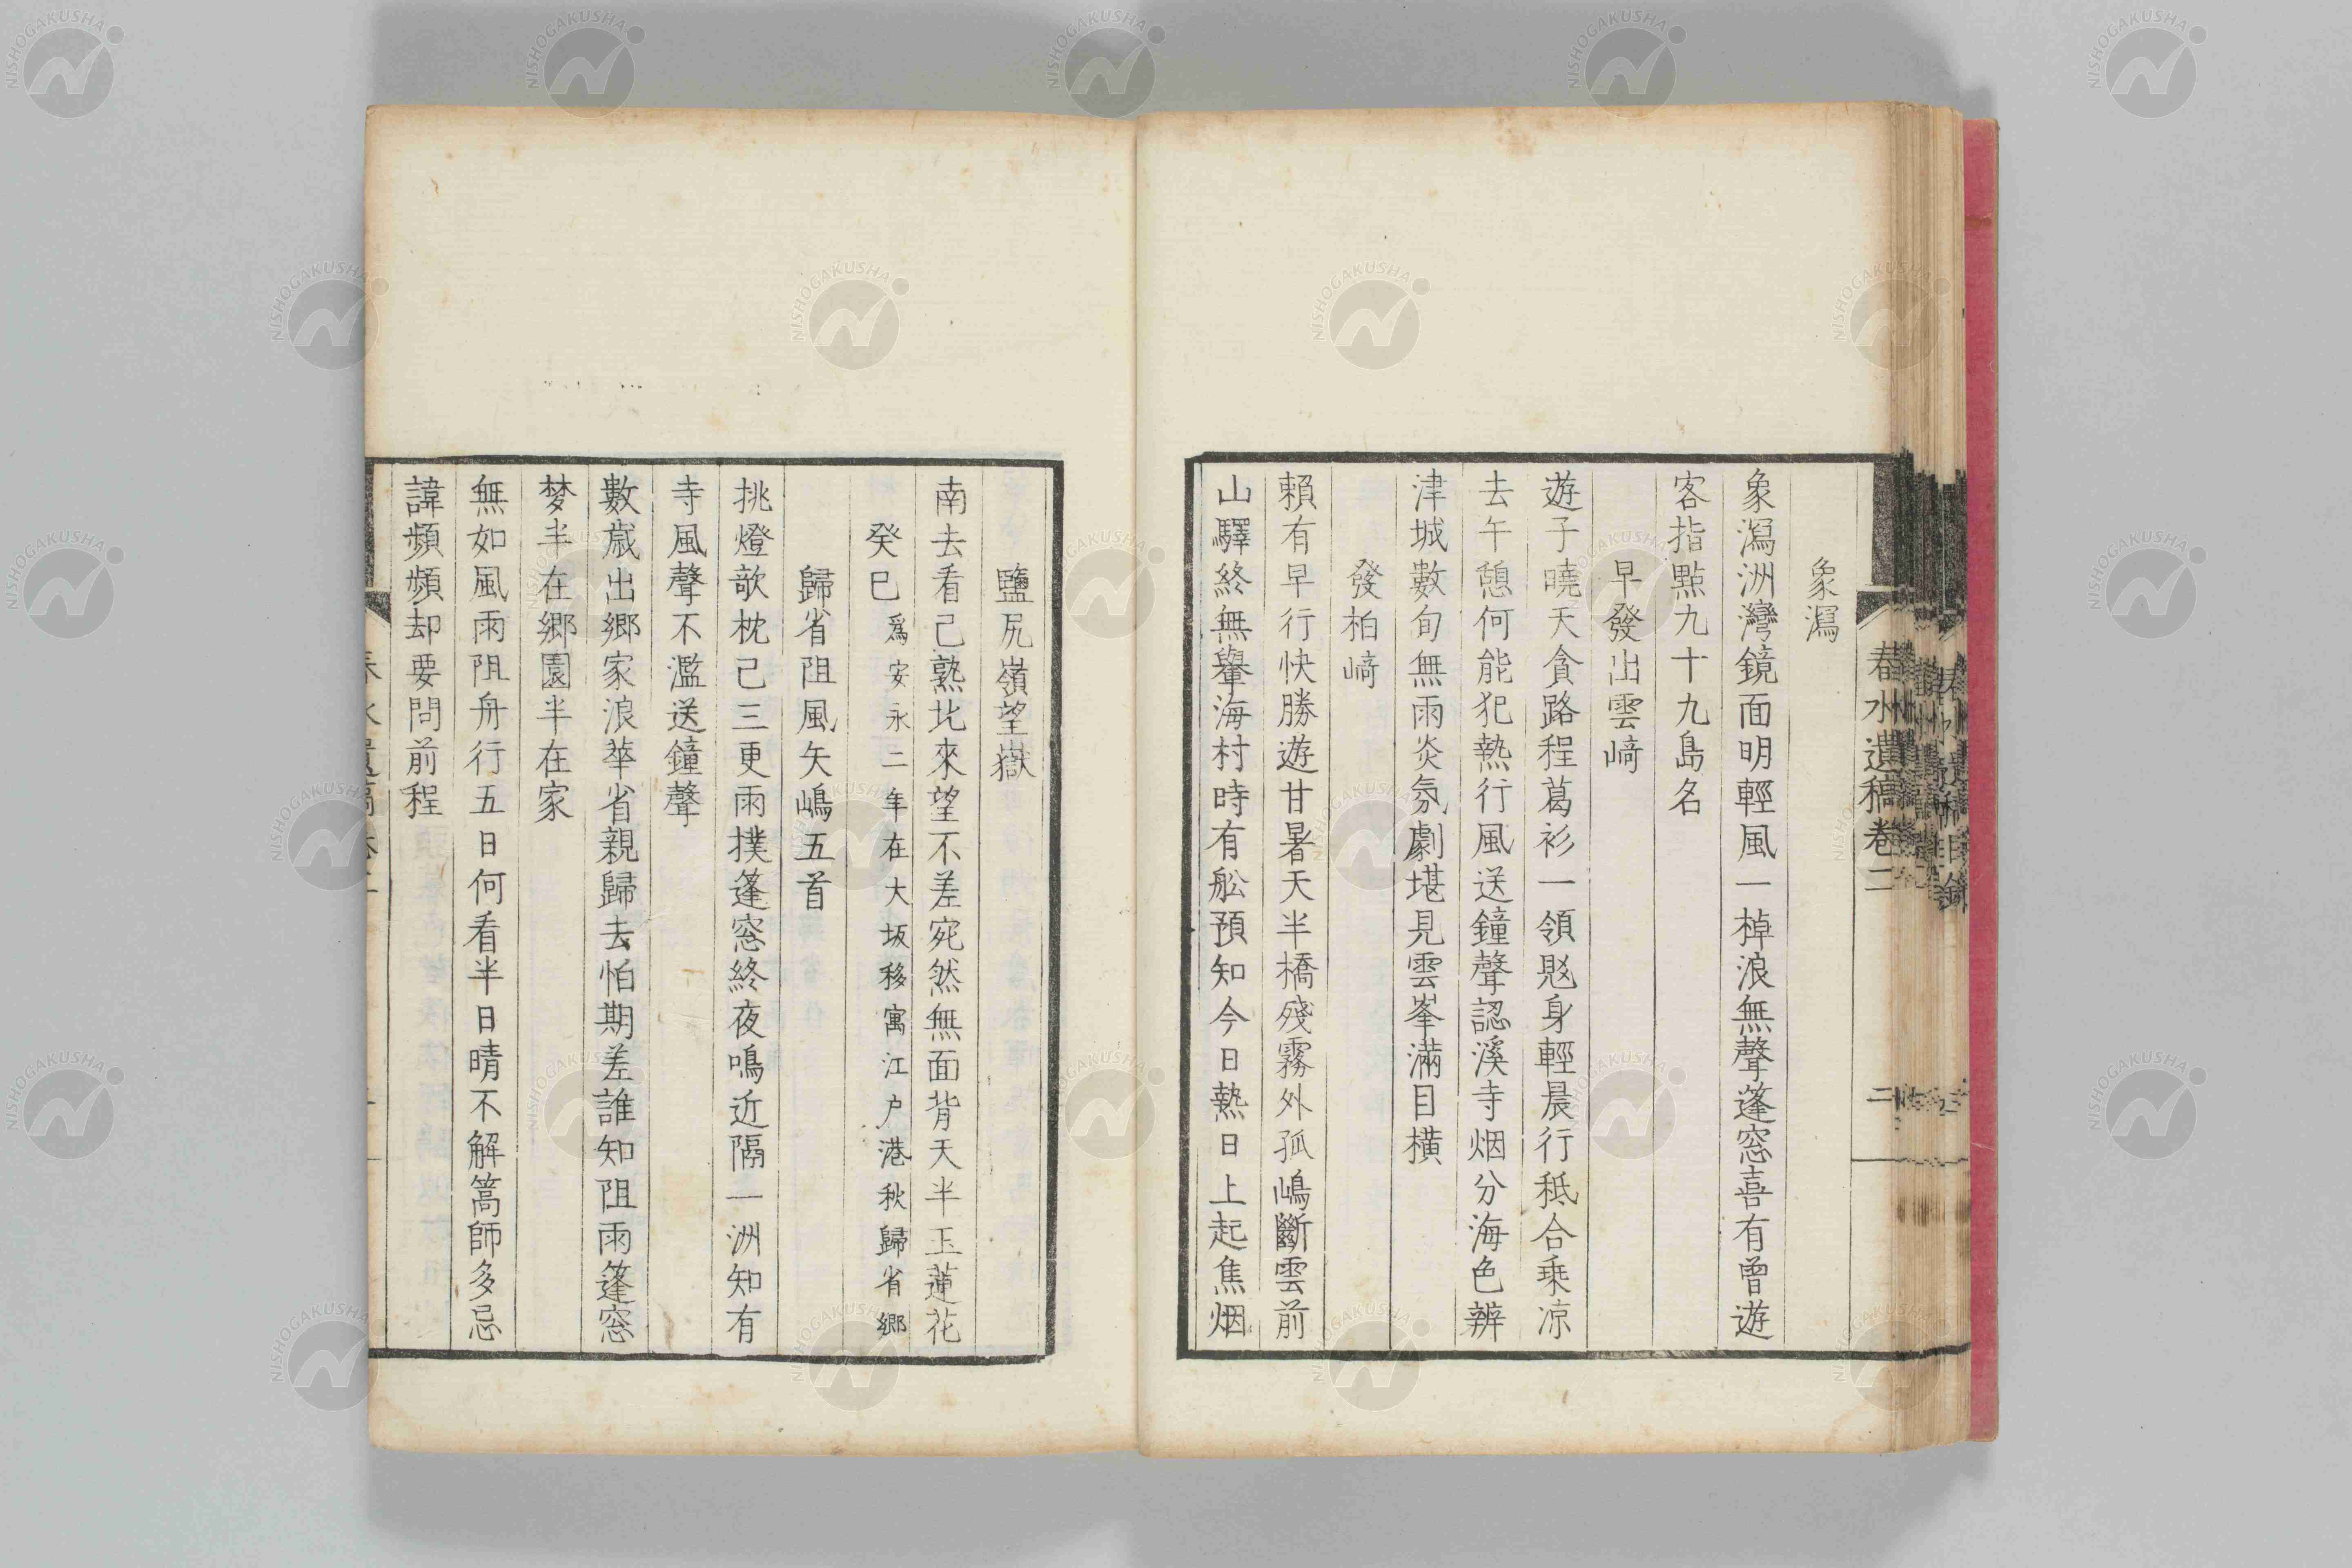 春水遺稿卷二
二
象瀉
象瀉洲灣鏡面明輕風一棹浪無聲蓬窓喜有曾遊
客指點九十九島名
早發出雲﨑
遊子曉天貪路程葛衫一領愳身輕晨行秪合乗凉
去午憩何能犯熱行風送鐘聲認溪寺烟分海色辨
津城數旬無雨炎氛劇堪見雲峯滿目橫
發柏﨑
賴有早行快勝遊甘暑天半橋殘霧外孤嶋斷雲前
山驛終無轝海村時有舩預知今日熱日上起焦烟
鹽尻嶺望嶽
南去看已熟北來望不差宛然無面背天半玉蓮花
癸巳爲安永二年在大坂移寓江戶港秋歸省鄉
歸省阻風矢嶋五首
挑燈欹枕已三更雨撲篷窓終夜鳴近隔一洲知有
寺風聲不濫送鐘聲
數歲出鄉家浪華省親歸去怕期差誰知阻雨篷窓
梦半在鄉園半在家
無如風雨阻舟行五日何看半日晴不解篙師多忌
諱頻頻却要問前程
NISHOGAKUSHA